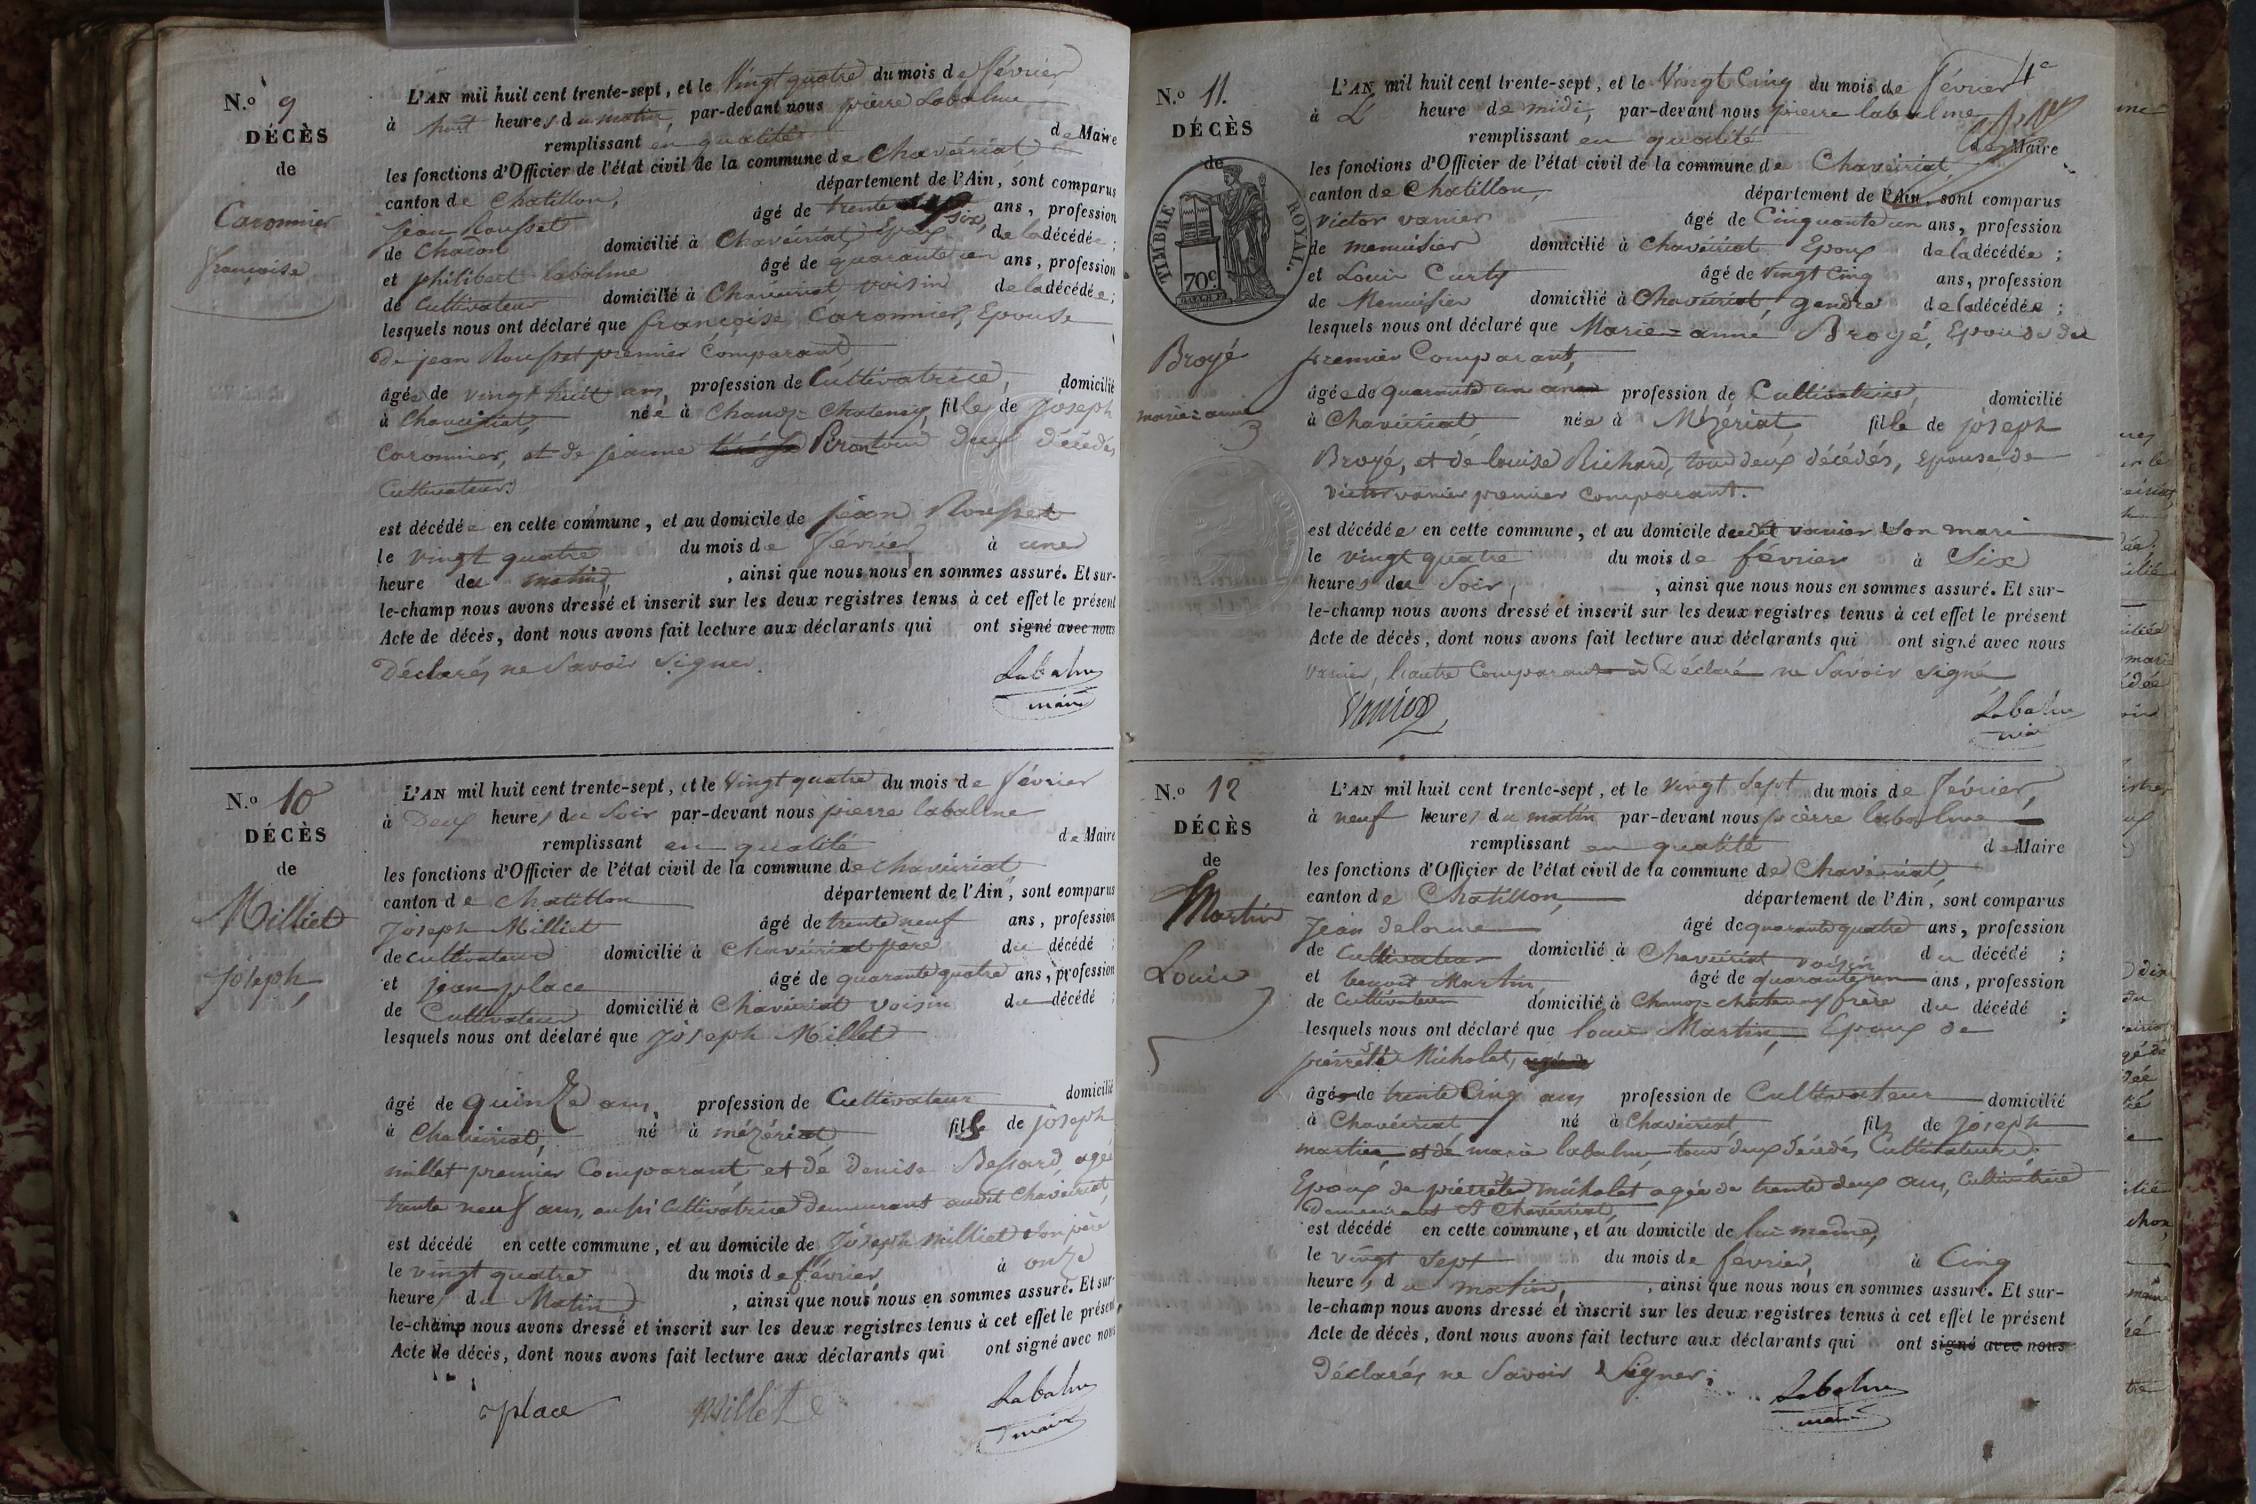 N.º 9
DÉCÈS
de
Caronnier
françoise
L'AN mil huit cent trente-sept, et le Vingt quatre du mois de février
à huit heures du matin, par-devant nous pierre Labalme
remplissant en qualité de Maire
les fonctions d'Officier de l'état civil de la commune de Chaveiriat
canton de Chatillon, département de l'Ain, sont comparus
Jean Rousset âgé de trente six ans, profession
de Charon domicilié à Chaveiriat Epoux de la décédée;
et philibert labalme âgé de quarante un ans, profession
de Cultivateur domicilié à Chaveiriat voisin de la décédée;
lesquels nous ont déclaré que françoise Caronnier, Epouse
de jean Rousset premier Comparant,
âgée de vingt huit ans, profession de Cultivatrice, domicilié
à Chaveiriat, née à Chanoz-Chatenay, fille de Joseph
Caronnier, et de jeanne tous deux décédés,
Cultivateurs
est décédée en cette commune, et au domicile de jean Rousset
le vingt quatre du mois de février à une
heure du matin, ainsi que nous nous en sommes assuré. Et sur-
le-champ nous avons dressé et inscrit sur les deux registres tenus à cet effet le présent
Acte de décès, dont nous avons fait lecture aux déclarants qui ont signé avec nous
Déclarés ne Savoir Signer.
Labalme
maire
N.º 10
DÉCÈS
de
Milliet
joseph
L'AN mil huit cent trente-sept, et le Vingt quatre du mois de février
à Deux heures du Soir par-devant nous pierre labalme
remplissant en qualité de Maire
les fonctions d'Officier de l'état civil de la commune de Chaveiriat
canton de Chatillon département de l'Ain, sont comparus
Joseph Milliet âgé de trente neuf ans, profession
de cultivateur domicilié à Chaveiriat père du décédé;
et jean place âgé de quarante quatre ans, profession
de Cultivateur domicilié à Chaveiriat voisin du décédé;
lesquels nous ont déclaré que joseph Millet
âgé de quinze ans, profession de Cultivateur domicilié
à Chaveiriat, né à mézériat fils de joseph
millet premier Comparant, et de Denise Bessard, agée
trente neuf ans, aussi Cultivatrice Demeurant audit Chaveiriat,
est décédé en cette commune, et au domicile de Joseph Milliet son père
le vingt quatre du mois de février, à onze
heures du Matin, ainsi que nous nous en sommes assuré. Et sur-
le-champ nous avons dressé et inscrit sur les deux registres tenus à cet effet le présent
Acte de décès, dont nous avons fait lecture aux déclarants qui ont signé avec nous
place Millet Labalme
maire
4e
N.º 11.
DÉCÈS
de
TIMBRE ROYAL.
70c
Broyé
marie=anne
L'AN mil huit cent trente-sept, et le Vingt Cinq du mois de février
à L heure de midi, par-devant nous pierre labalme
remplissant en qualité de Maire
les fonctions d'Officier de l'état civil de la commune de Chaveiriat,
canton de Chatillon, département de l'Ain, sont comparus
Victor vanier âgé de Cinquante un ans, profession
de menuisier domicilié à Chaveiriat Epoux de la décédée;
et Louis Curty âgé de Vingt Cinq ans, profession
de Menuisier domicilié à Chaveiriat, gendre de la décédée;
lesquels nous ont déclaré que Marie=anne Broyé, Epouse du
premier Comparant,
âgée de quarante un ans profession de Cultivatrice, domicilié
à Chaveiriat, née à Mézériat, fille de joseph
Broyé, et de louise Richard, tous deux décédés, Epouse de
victor vanier premier Comparant.
est décédée en cette commune, et au domicile dudit vanier Son mari
le vingt quatre du mois de février à Six
heures du Soir, ainsi que nous nous en sommes assuré. Et sur-
le-champ nous avons dressé et inscrit sur les deux registres tenus à cet effet le présent
Acte de décès, dont nous avons fait lecture aux déclarants qui ont signé avec nous
vanier, l'autre Comparant a Déclaré ne Savoir signé
Vanier
Labalme
N.º 12
DÉCÈS
de
Martin
Louis
L'AN mil huit cent trente-sept, et le vingt Sept du mois de février,
à neuf heures du matin par-devant nous pierre labalme
remplissant en qualité de Maire
les fonctions d'Officier de l'état civil de la commune de Chaveiriat,
canton de Chatillon, département de l'Ain, sont comparus
Jean delorme âgé de quarante quatre ans, profession
de Cultivateur domicilié à Chaveiriat voisin du décédé;
et benoit Martin, âgé de quarante un ans, profession
de Cultivateur domicilié à Chanoz=chatenay frère du décédé;
lesquels nous ont déclaré que louis Martin, Epoux de
pierrette Micholet,
âgé de trente Cinq ans profession de Cultivateur domicilié
à Chaveiriat né à Chaveiriat, fils de joseph
martin, et de marie labalme, tous deux décédés, Cultivateurs,
Epoux de pierrette micholet agée de trente deux ans, Cultivatrice
Demeurant à Chaveiriat,
est décédé en cette commune, et au domicile de lui même,
le vingt Sept du mois de février, à Cinq
heures du matin, ainsi que nous nous en sommes assuré. Et sur-
le-champ nous avons dressé et inscrit sur les deux registres tenus à cet effet le présent
Acte de décès, dont nous avons fait lecture aux déclarants qui ont signé avec nous
Déclarés ne Savoir Signer;
Labalme
maire